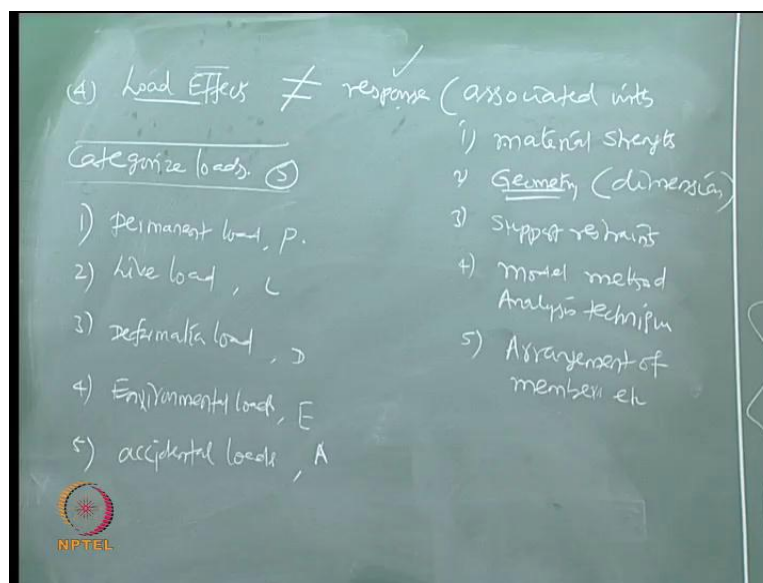 (4) Load Effects ≠ response (associated with
Categorize loads. (5)
1) Permanent load, P.
2) Live load, L
3) Deformation load, D
4) Environmental loads, E
5) accidental loads, A
1) material strength
2) Geometry (dimension)
3) Support restraints
4) model method
Analysis technique
5) Arrangement of
members etc
NPTEL